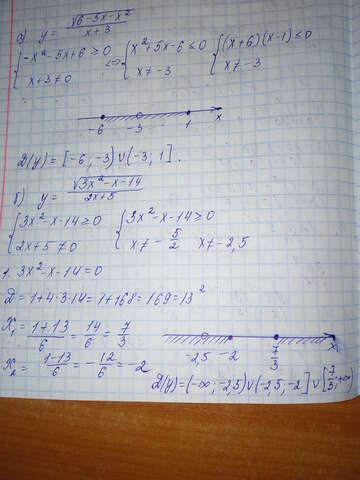 а) y = √(6-5x-x²) / (x+3)
{ -x²-5x+6 ≥ 0 <=> { x²+5x-6 ≤ 0 { (x+6)(x-1) ≤ 0
x+3 ≠ 0 x ≠ -3 x ≠ -3
-6 -3 1 x
D(y) = [-6, -3) ∪ (-3, 1].
б) y = √(3x²-x-14) / (2x+5)
{ 3x²-x-14 ≥ 0 { 3x²-x-14 ≥ 0
2x+5 ≠ 0 x ≠ -5/2 x ≠ -2,5
1. 3x²-x-14=0
D = 1+4·3·14 = 1+168 = 169 = 13²
x₁ = (1+13)/6 = 14/6 = 7/3
x₂ = (1-13)/6 = -12/6 = -2
-2,5 -2 7/3 x
D(y) = (-∞, -2,5) ∪ (-2,5, -2] ∪ [7/3, +∞)